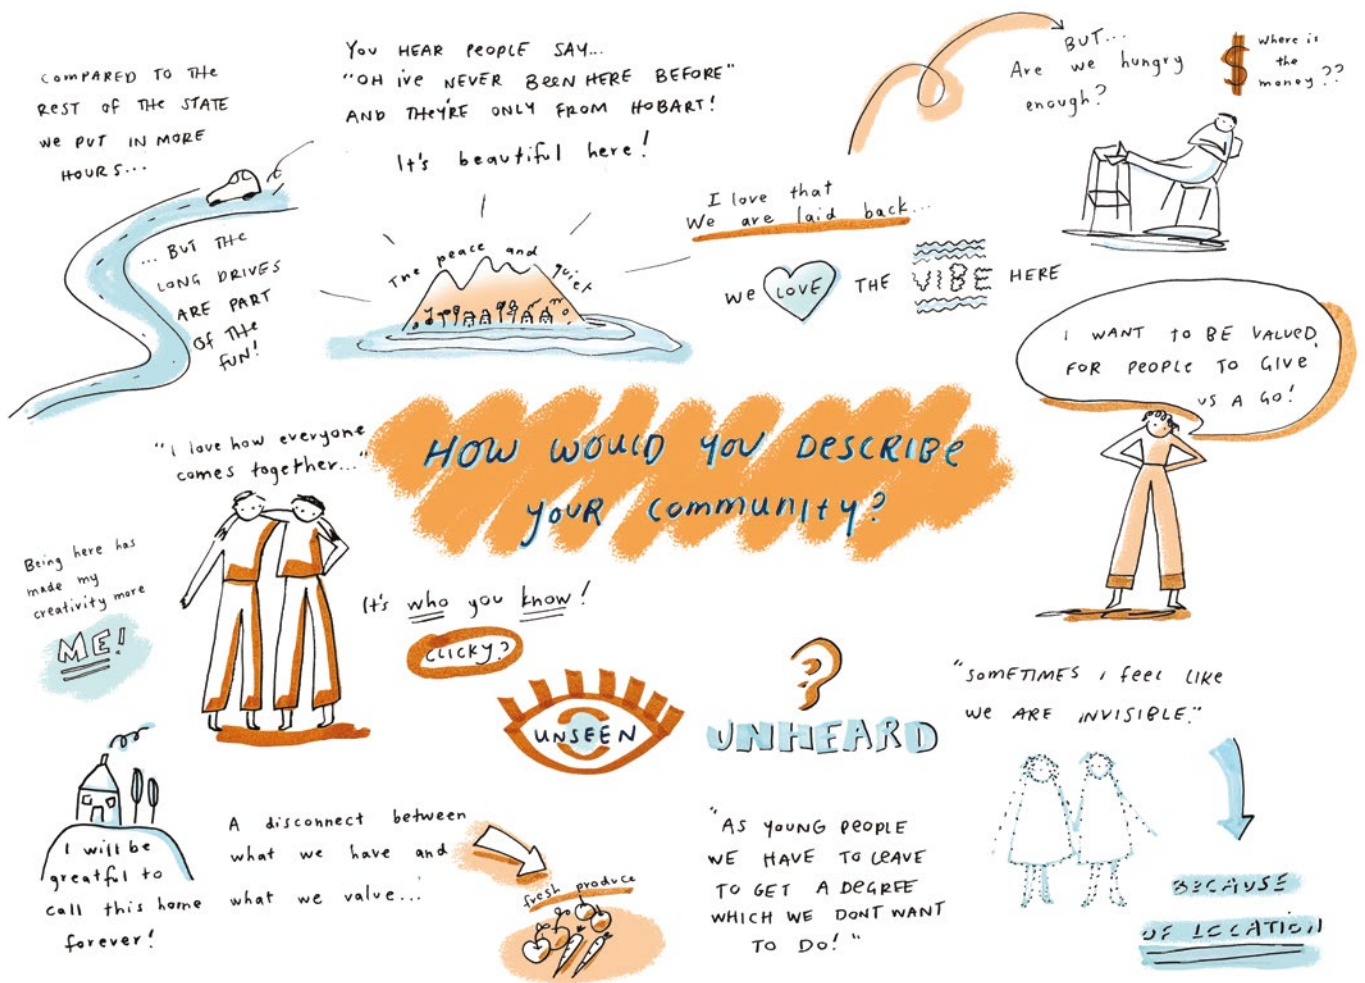 COMPARED TO THE
REST OF THE STATE
WE PUT IN MORE
HOURS...
... BUT THE
LONG DRIVES
ARE PART
OF THE
FUN!
YOU HEAR PEOPLE SAY...
"OH IVE NEVER BEEN HERE BEFORE"
AND THEY'RE ONLY FROM HOBART!
It's beautiful here!
The peace and quiet
I love that
We are laid back...
BUT...
Are we hungry
enough?
$
Where is
the
money??
WE LOVE THE VIBE HERE
I WANT TO BE VALUED,
FOR PEOPLE TO GIVE
US A GO!
HOW WOULD YOU DESCRIBE
YOUR COMMUNITY?
"I love how everyone
comes together..."
Being here has
made my
creativity more
ME!
It's who you know!
CLICKY?
UNSEEN
?
UNHEARD
"SOMETIMES I FEEL LIKE
WE ARE INVISIBLE."
BECAUSE
OF LOCATION
I will be
greatful to
call this home
forever!
A disconnect between
what we have and
what we value...
fresh produce
"AS YOUNG PEOPLE
WE HAVE TO LEAVE
TO GET A DEGREE
WHICH WE DONT WANT
TO DO!"